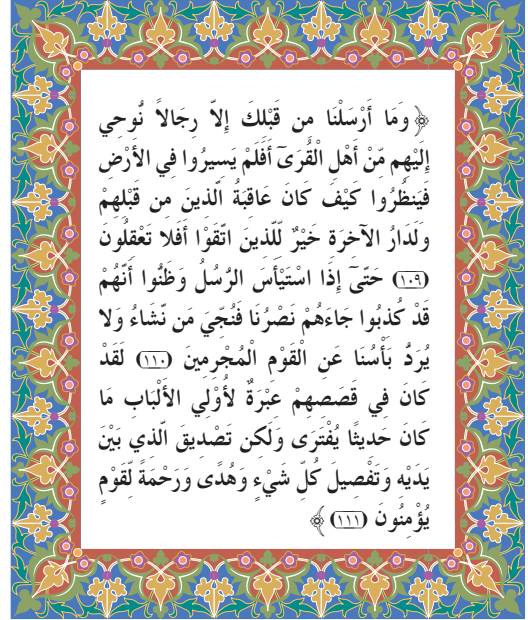 ﴿ وَمَا أَرْسَلْنَا مِن قَبْلِكَ إِلاَّ رِجَالاً نُّوحِي
إِلَيْهِم مِّنْ أَهْلِ الْقُرَىٓ أَفَلَمْ يَسِيرُوا فِي الأَرْضِ
فَيَنظُرُوا كَيْفَ كَانَ عَاقِبَةُ الَّذِينَ مِن قَبْلِهِمْ
وَلَدَارُ الآخِرَةِ خَيْرٌ لِّلَّذِينَ اتَّقَوْا أَفَلا تَعْقِلُونَ
(١٠٩) حَتَّىٓ إِذَا اسْتَيْأَسَ الرُّسُلُ وَظَنُّوا أَنَّهُمْ
قَدْ كُذِبُوا جَاءَهُمْ نَصْرُنَا فَنُجِّيَ مَن نَّشَاءُ وَلا
يُرَدُّ بَأْسُنَا عَنِ الْقَوْمِ الْمُجْرِمِينَ (١١٠) لَقَدْ
كَانَ فِي قَصَصِهِمْ عِبْرَةٌ لأُوْلِي الأَلْبَابِ مَا
كَانَ حَدِيثًا يُفْتَرَى وَلَكِن تَصْدِيقَ الَّذِي بَيْنَ
يَدَيْهِ وَتَفْصِيلَ كُلِّ شَيْءٍ وَهُدًى وَرَحْمَةً لِّقَوْمٍ
يُؤْمِنُونَ (١١١) ﴾